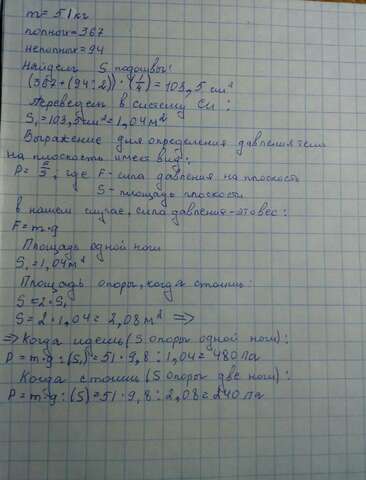 m = 51 кг
полных = 367
неполных = 94
Найдем S подошвы:
(367+(94:2))·(1/4) = 103,5 см²
Переведем в систему Си:
S₁=103,5см²=1,04м²
Выражение для определения давления тела
на плоскость имеет вид:
P=F/S, где F-сила давления на плоскость
S-площадь плоскости
в нашем случае, сила давления-это вес:
F=m·g
Площадь одной ноги
S₁=1,04м²
Площадь опоры, когда стоишь:
S=2·S₁
S=2·1,04=2,08м² =>
=> Когда идешь (S опоры одной ноги):
P=m·g:(S₁)=51·9,8:1,04=480Па
Когда стоишь (S опоры две ноги):
P=m·g:(S)=51·9,8:2,08=240Па